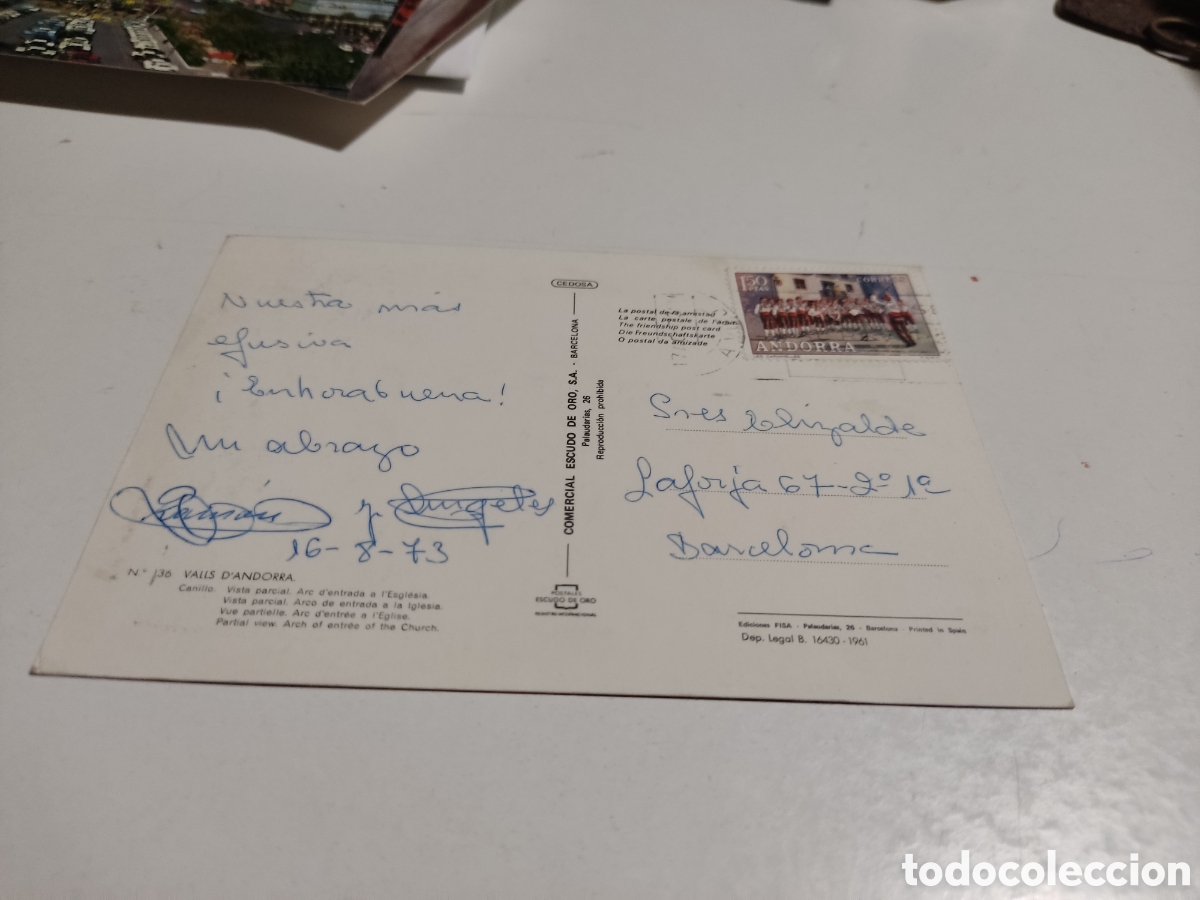 Nuestra más
efusiva
¡Enhorabuena!
Un abrazo
Ramón y Angeles
16-8-73
N.º 136 VALLS D'ANDORRA.
Canillo. Vista parcial. Arc d'entrada a l'Església.
Vista parcial. Arco de entrada a la Iglesia.
Vue partielle. Arc d'entrée a l'Eglise.
Partial view. Arch of entrée of the Church.
CEDOSA
COMERCIAL ESCUDO DE ORO, S.A. - BARCELONA
Palaudarias, 26
Reproducción prohibida
POSTALES
ESCUDO DE ORO
La postal de la amistad
La carte postale de l'amitié
The friendship post card
Die freundschaftskarte
O postal da amizade
1'50
PTAS
CORREOS
ANDORRA
Sres Elizalde
Laforja 67-2º 1ª
Barcelona
Ediciones FISA - Palaudarias, 26 - Barcelona - Printed in Spain
Dep. Legal B. 16430-1961
todocoleccion